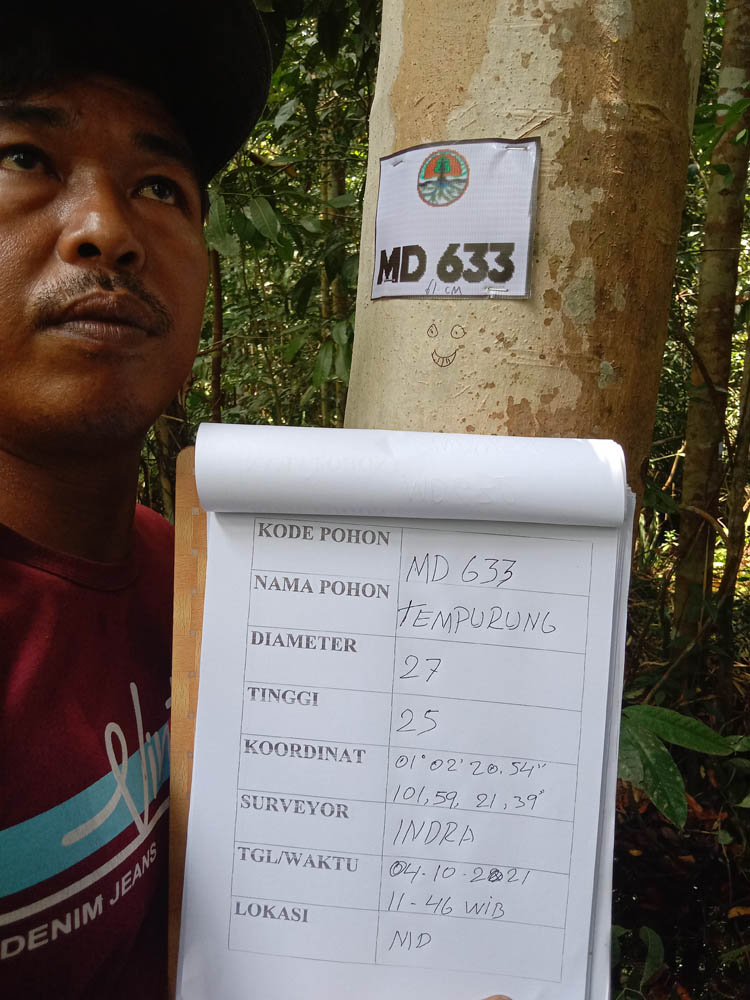 MD 633
61 CM
KODE POHON MD 633
NAMA POHON TEMPURUNG
DIAMETER 27
TINGGI 25
KOORDINAT 01° 02' 20.54"
101, 59, 21, 39"
SURVEYOR INDRA
TGL/WAKTU 04-10-2021
11-46 WIB
LOKASI MD
DENIM JEANS